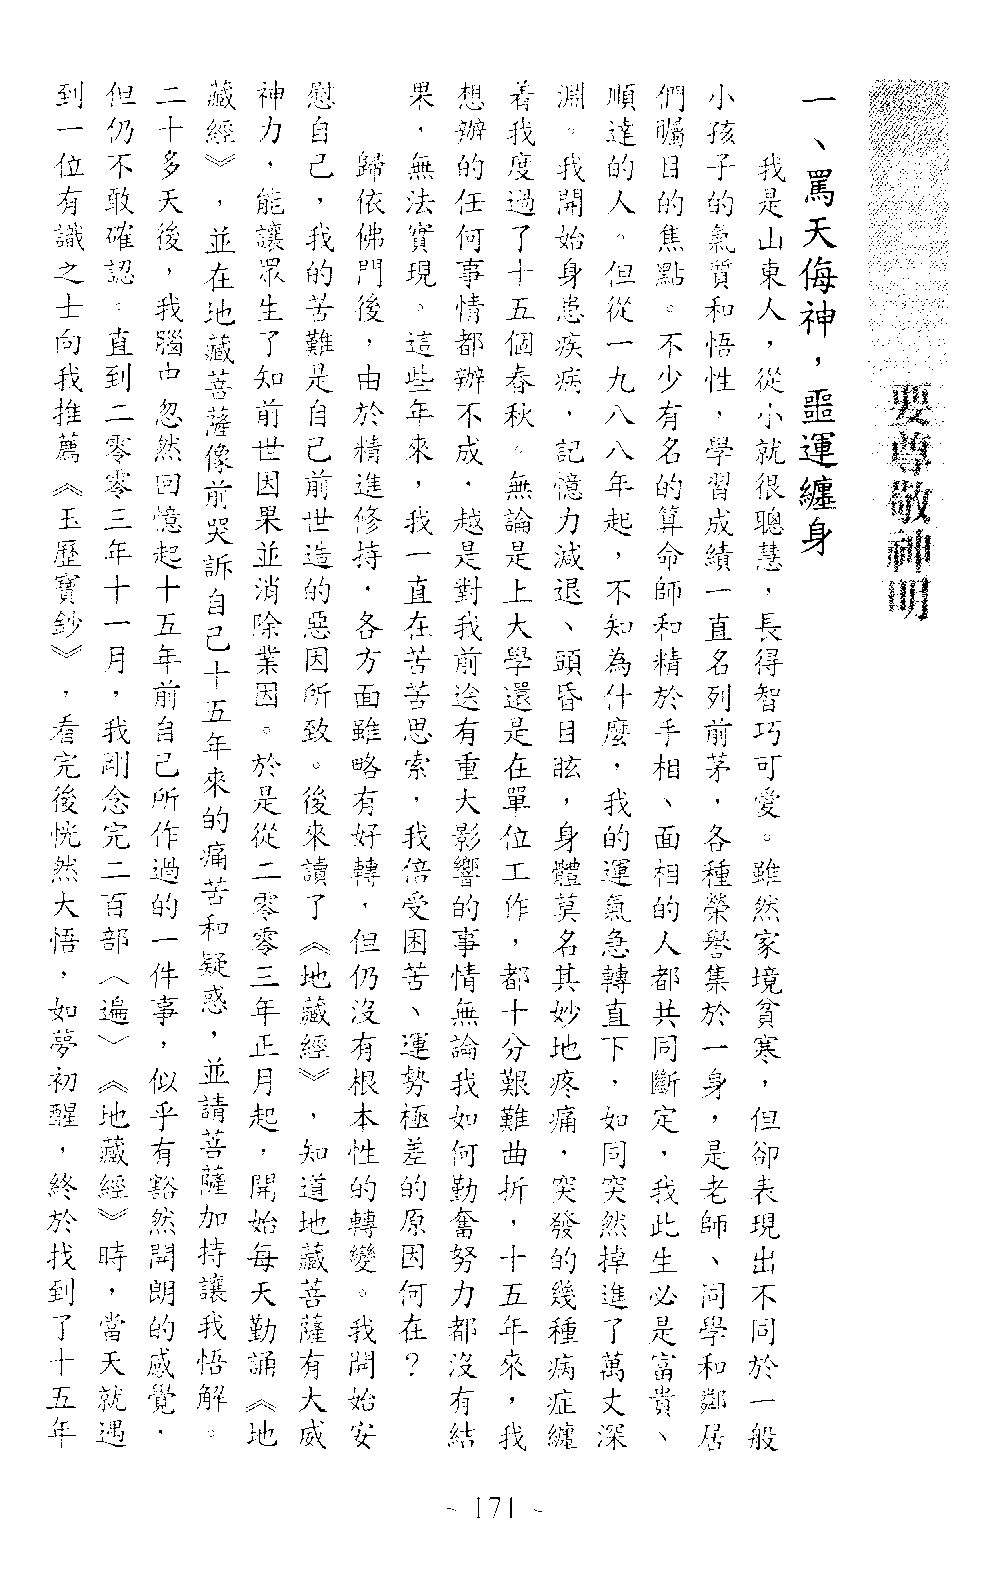 要尊敬神明
一、罵天侮神，噩運纏身
我是山東人，從小就很聰慧，長得智巧可愛。雖然家境貧寒，但卻表現出不同於一般
小孩子的氣質和悟性，學習成績一直名列前茅，各種榮譽集於一身，是老師、同學和鄰居
們矚目的焦點。不少有名的算命師和精於手相、面相的人都共同斷定，我此生必是富貴、
順達的人。但從一九八八年起，不知為什麼，我的運氣急轉直下，如同突然掉進了萬丈深
淵。我開始身患疾病，記憶力減退、頭昏目眩，身體莫名其妙地疼痛，突發的幾種病症纏
着我度過了十五個春秋。無論是上大學還是在單位工作，都十分艱難曲折，十五年來，我
想辦的任何事情都辦不成，越是對我前途有重大影響的事情無論我如何勤奮努力都沒有結
果，無法實現。這些年來，我一直在苦苦思索，我倍受困苦、運勢極差的原因何在？
歸依佛門後，由於精進修持，各方面雖略有好轉，但仍沒有根本性的轉變。我開始安
慰自己，我的苦難是自己前世造的惡因所致。後來讀了《地藏經》，知道地藏菩薩有大威
神力，能讓眾生了知前世因果並消除業因。於是從二零零三年正月起，開始每天勤誦《地
藏經》，並在地藏菩薩像前哭訴自己十五年來的痛苦和疑惑，並請菩薩加持讓我悟解。
二十多天後，我腦中忽然回憶起十五年前自己所作過的一件事，似乎有豁然開朗的感覺，
但仍不敢確認。直到二零零三年十一月，我剛念完二百部〈遍〉《地藏經》時，當天就遇
到一位有識之士向我推薦《玉歷寶鈔》，看完後恍然大悟，如夢初醒，終於找到了十五年
~ 171 ~